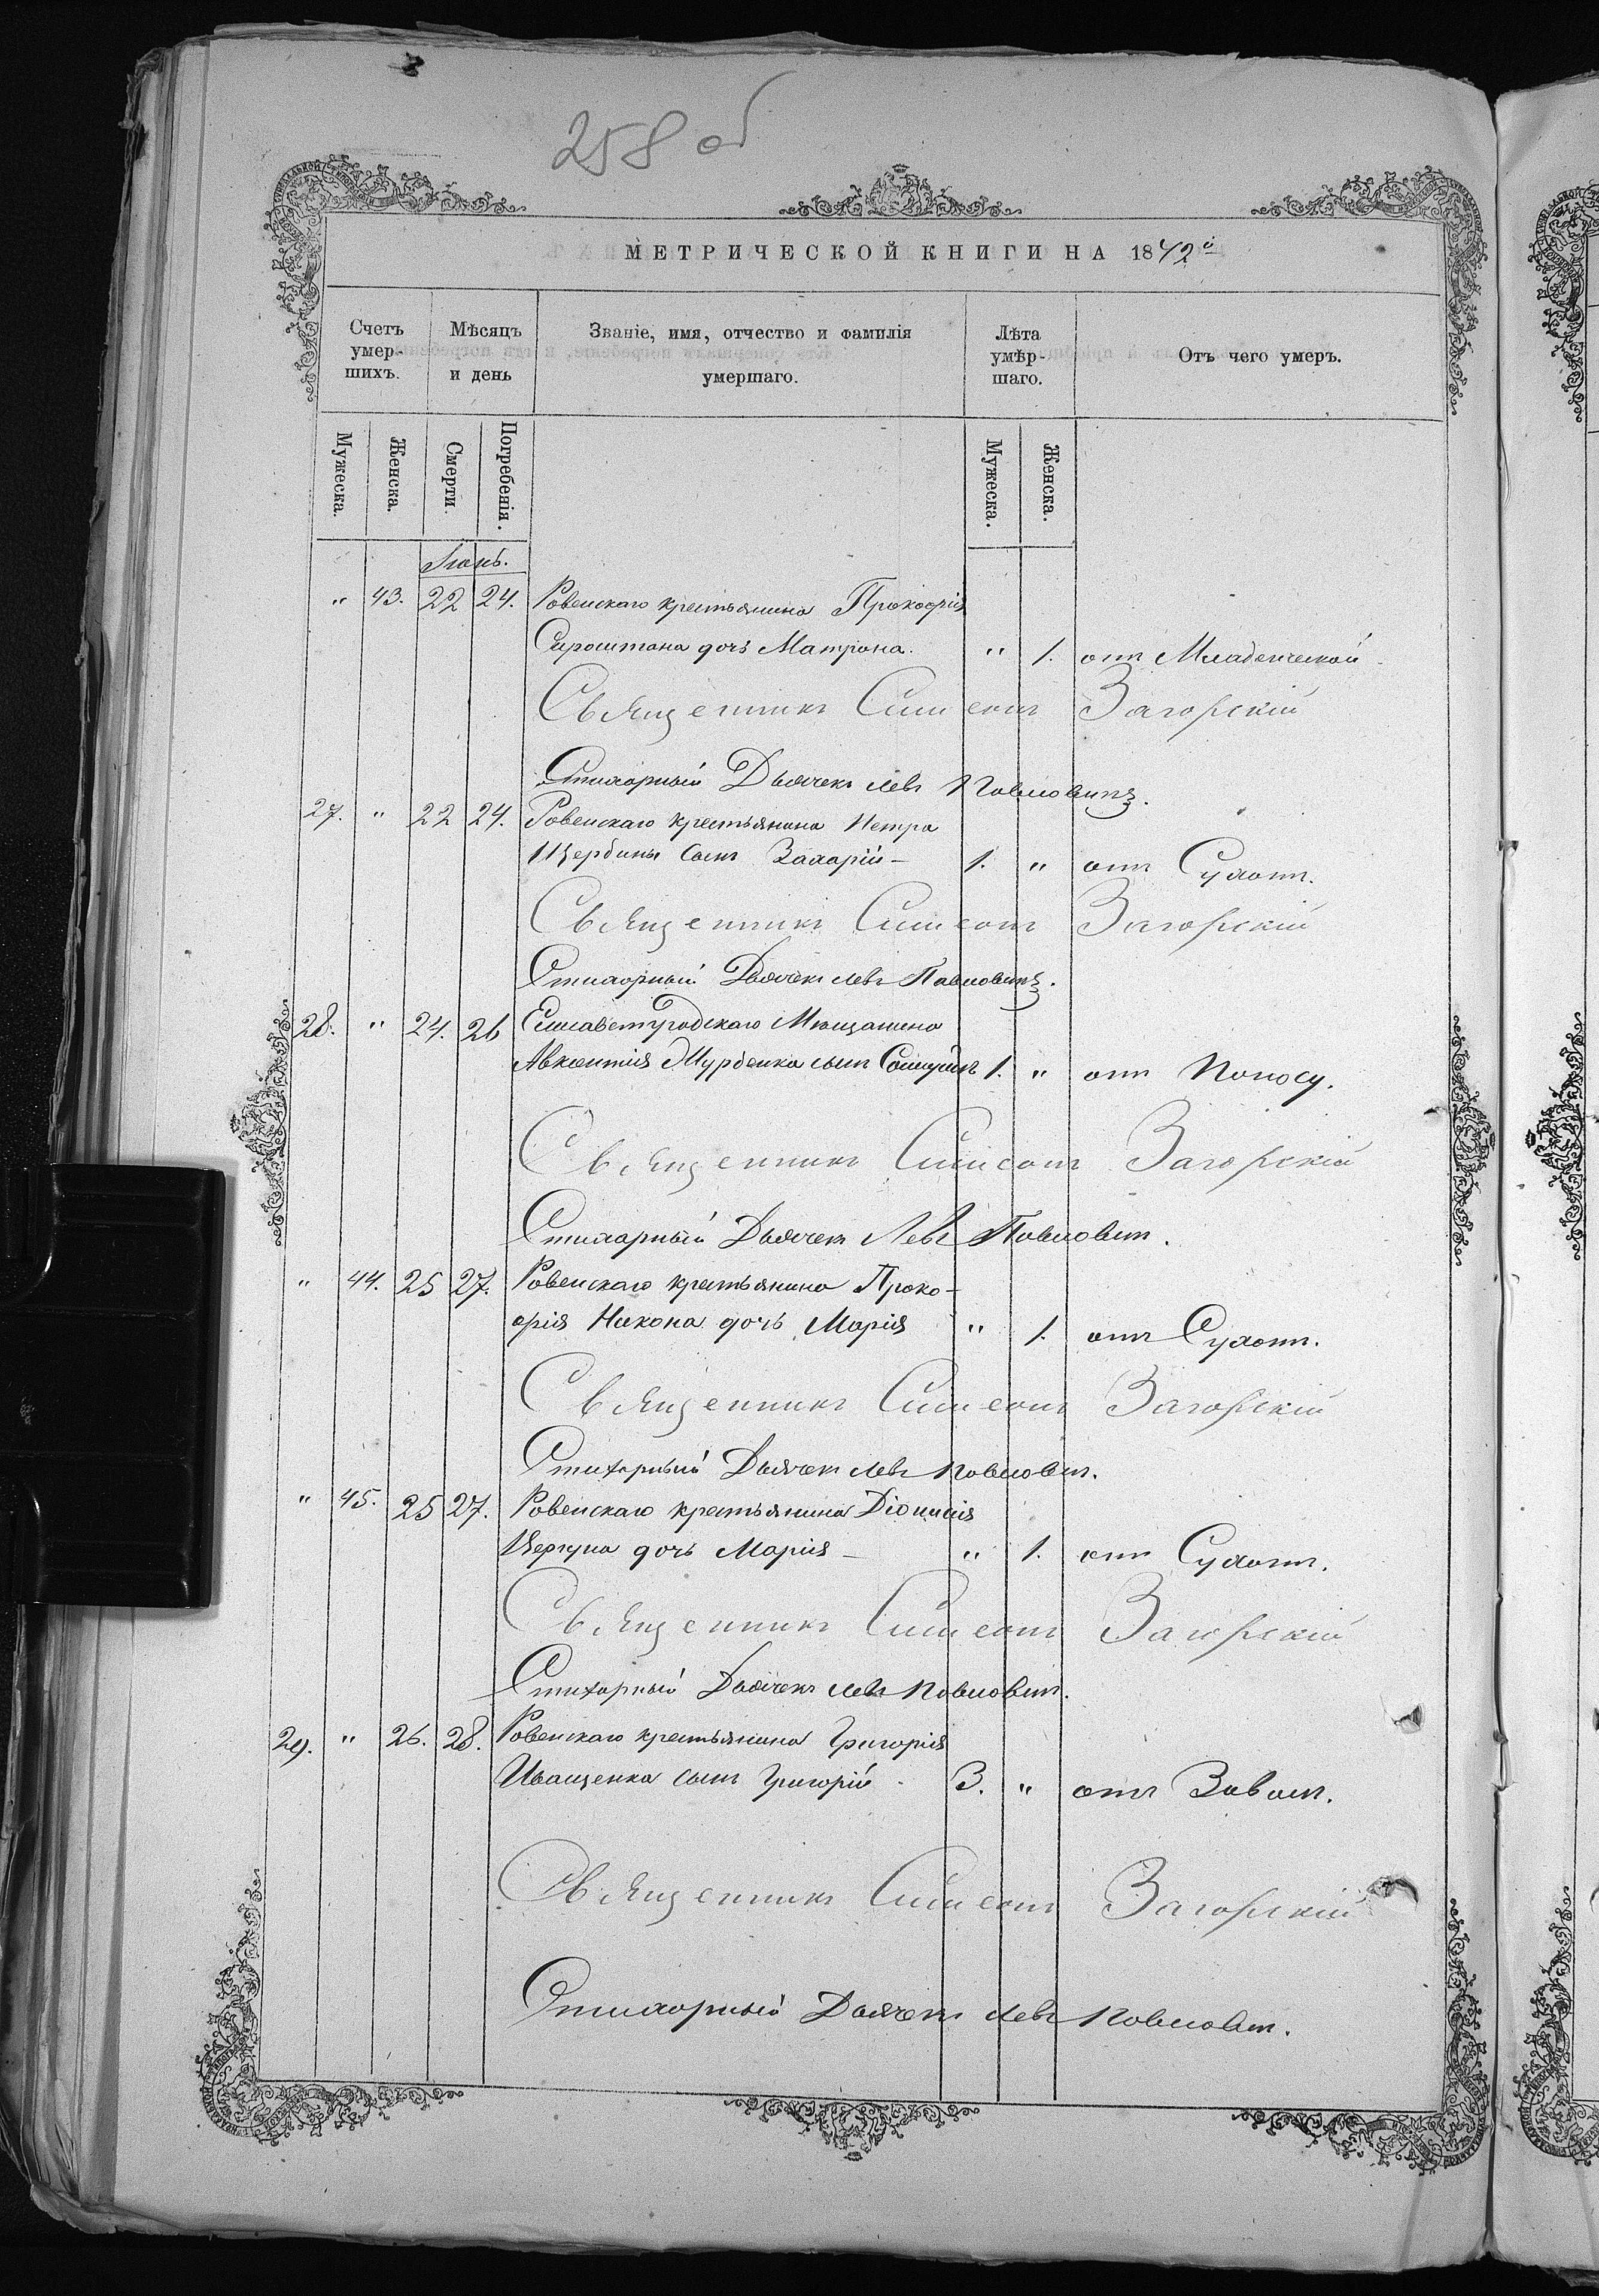 258 об
МЕТРИЧЕСКОЙ КНИГИ НА 1872й
Счетъ умер-шихъ.
Мѣсяцъ и день
Званіе, имя, отчество и фамилія умершаго.
Лѣта умѣр-шаго.
Отъ чего умеръ.
Мужеска. Женска. Смерти. Погребенія. Мужеска. Женска.
" 43. 22 24. Ровенскаго крестьянина Прокофія
Сыроштана дочь Матрона. " 1. отъ Младенческой
Священникъ Симеонъ Загорскій
Стихарный Дьячекъ Левъ Павловичъ.
27. " 22 24. Ровенскаго крестьянина Петра
Щербины сынъ Захарій – 1. " отъ Сухотъ.
Священникъ Симеонъ Загорскій
Стихарный Дьячекъ Левъ Павловичъ.
28. " 24. 26 Елисаветградскаго Мѣщанина
Авксентія сынъ 1. " отъ Поносу.
Священникъ Симеонъ Загорскій
Стихарный Дьячекъ Левъ Павловичъ.
" 44. 25 27. Ровенскаго крестьянина Проко-
фія Никона дочь Марія " 1. отъ Сухотъ.
Священникъ Симеонъ Загорскій
Стихарный Дьячекъ Левъ Павловичъ.
" 45. 25 27. Ровенскаго крестьянина Діонисія
дочь Марія – " 1. отъ Сухотъ.
Священникъ Симеонъ Загорскій
Стихарный Дьячекъ Левъ Павловичъ.
29. " 26. 28. Ровенскаго крестьянина Григорія
Иващенка сынъ Григорій 3. " отъ Завалъ.
Священникъ Симеонъ Загорскій
Стихарный Дьячекъ Левъ Павловичъ.